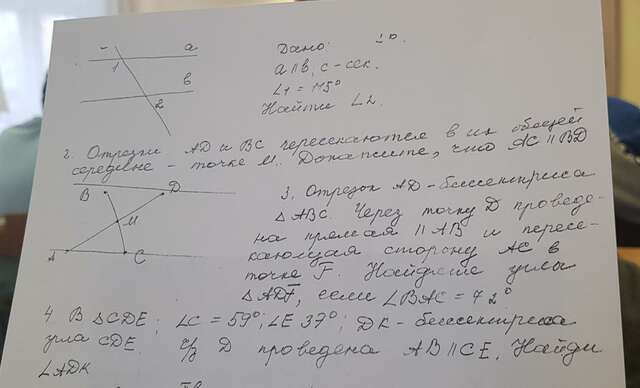 a
1
в
2
Дано:
a || в, с-сек.
∠1 = 115°
Найти ∠2.
2. Отрезки АД и ВС пересекаются в их общей
середине - точке М. Докажите, что АС || BD
В
D
М
А
С
3. Отрезок АД - биссектриса
△ АВС. Через точку D проведе-
на прямая || АВ и пересе-
кающая сторону АС в
точке F. Найдите углы
△ADF, если ∠BAC = 72°
4 В △CDE; ∠C = 59°; ∠E 37°; DK - биссектриса
угла CDE. с/з D проведена АВ || СЕ. Найди
∠ADK